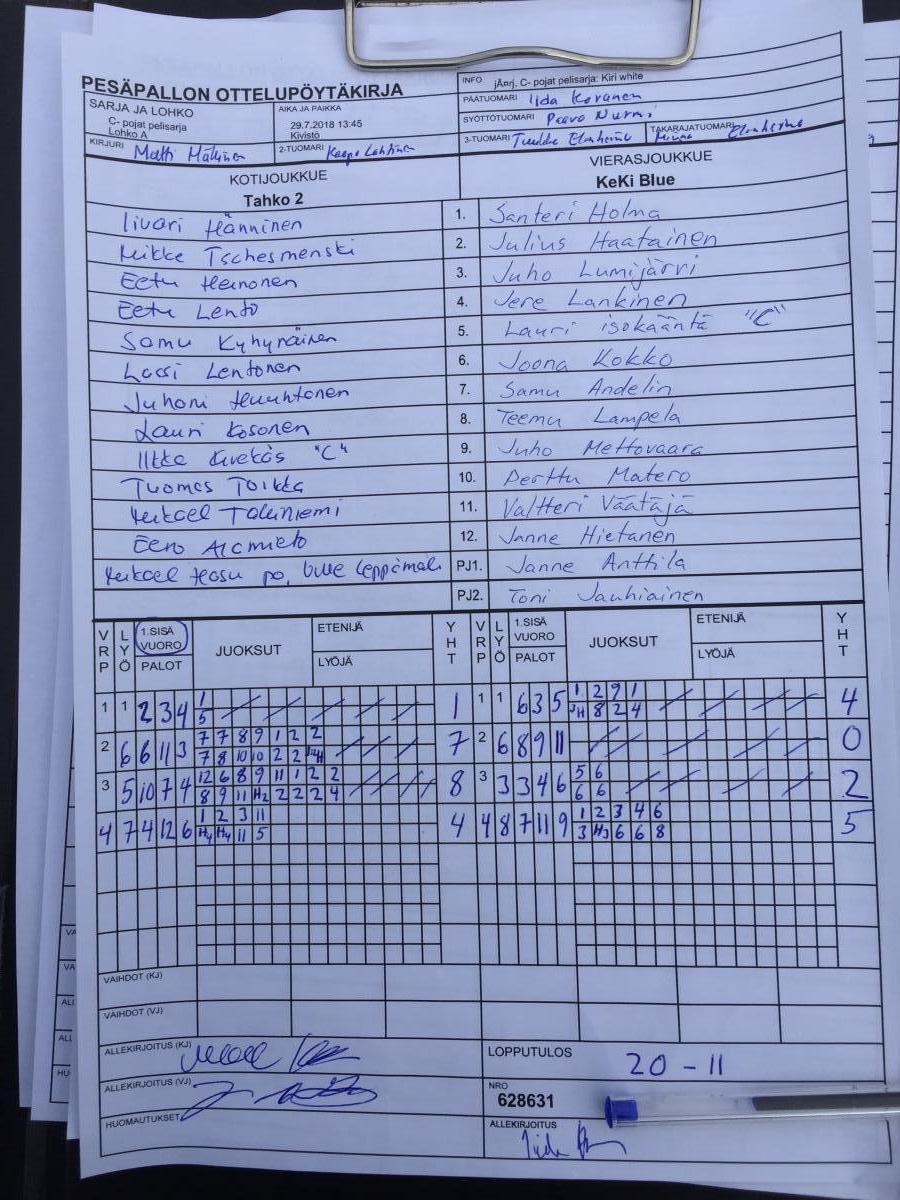 PESÄPALLON OTTELUPÖYTÄKIRJA
INFO jÄnrj. C- pojat pelisarja: Kiri white
SARJA JA LOHKO
C- pojat pelisarja
Lohko A
AIKA JA PAIKKA
29.7.2018 13:45
Kivistö
PÄÄTUOMARI Iida Koranen
SYÖTTÖTUOMARI Paavo Nurmi
KIRJURI Matti Mälkinen
2-TUOMARI Kaapo Lahtinen
3-TUOMARI Tuukka Elonheimo
TAKARAJATUOMARI Elonheimo
KOTIJOUKKUE
Tahko 2
VIERASJOUKKUE
KeKi Blue
Iivari Hänninen 1. Santeri Holma
Mikke Tschesmenski 2. Julius Haatainen
Eetu Heinonen 3. Juho Lumijärvi
Eetu Lento 4. Jere Lankinen
Samu Kyhynäinen 5. Lauri isokääntä "C"
Lassi Lentonen 6. Joona Kokko
Juhani Huuhtanen 7. Samu Andelin
Lauri Kosonen 8. Teemu Lampela
Ilkka Kivekäs "C" 9. Juho Mettovaara
Tuomas Toikka 10. Perttu Matero
Mikael Taliniemi 11. Valtteri Väätäjä
Eero 12. Janne Hietanen
Mikael Hasu PJ1. Janne Anttila
PJ2. Toni Jauhiainen
VRP LYÖ 1.SISÄ VUORO PALOT JUOKSUT ETENIJÄ LYÖJÄ YHT VRP LYÖ 1.SISÄ VUORO PALOT JUOKSUT ETENIJÄ LYÖJÄ YHT
1 1 2 3 4 1 1 1 1 6 3 5 1 2 9 1 4
5 JH 8 2 4
2 6 6 11 3 7 7 8 9 1 2 2 7 2 6 8 9 11 0
7 8 10 10 2 2
3 5 10 7 4 12 6 8 9 11 1 2 2 8 3 3 3 4 6 5 6 2
8 9 11 H2 2 2 2 4 6 6
4 7 4 12 6 1 2 3 11 4 4 8 7 11 9 1 2 3 4 6 5
H4 H4 11 5 3 H3 6 6 8
VAIHDOT (KJ)
VAIHDOT (VJ)
ALLEKIRJOITUS (KJ)
LOPPUTULOS 20 - 11
ALLEKIRJOITUS (VJ)
NRO
628631
HUOMAUTUKSET
ALLEKIRJOITUS